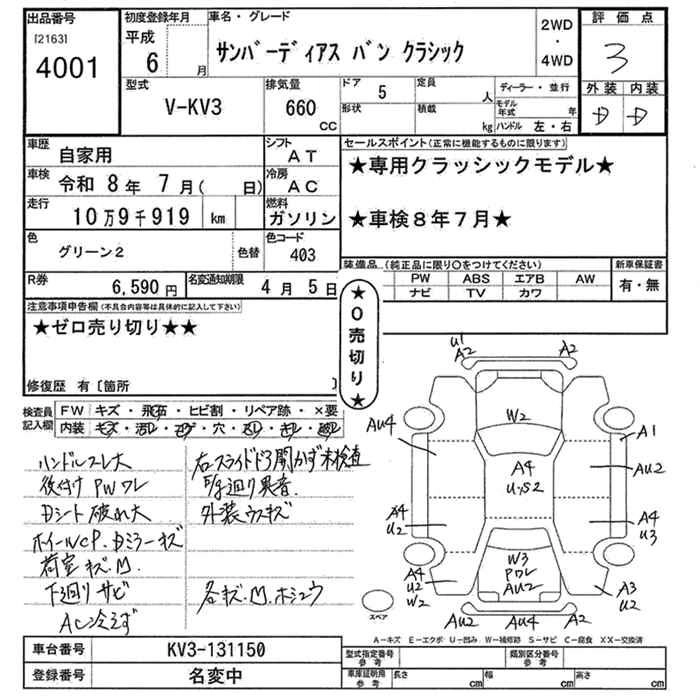 出品番号
[2163]
4001
初度登録年月
平成
6 月
車名・グレード
サンバーディアス バン クラシック
2WD
・
4WD
評価点
3
外装 内装
D D
型式
V-KV3
排気量
660
CC
ドア 5
形状
定員 人
積載 kg
ディーラー・並行
モデル年式 年
ハンドル 左・右
車歴 自家用
シフト AT
車検 令和 8年 7月( 日)
冷房 AC
走行 10万9千919 km
燃料 ガソリン
色 グリーン2 色替
色コード 403
R券 6,590円
名変通知期限 4月 5日
セールスポイント(正常に機能するものに限ります)
★専用クラッシックモデル★
★車検8年7月★
装備品(純正品に限り○をつけてください)
PW ABS エアB AW
ナビ TV カワ
新車保証書
有・無
注意事項申告欄(不具合内容等は具体的に記入して下さい)
★ゼロ売り切り★★
修復歴 有〔箇所 〕
★0売切り★
検査員記入欄
FW キズ・飛石・ヒビ割・リペア跡・×要
内装 キズ・汚レ・コゲ・穴・スレ・キレ・
ハンドルスレ大
後付け PWワレ
Dシート破れ大
ホイールCP.Dミラーキズ
荷室キズ.M.
下廻りサビ
AC冷えず
右スライドドア開かず未検査
F/S廻り異音.
外装ウスキズ
各キズ.M.ホシュウ
U1
A2
A2
W2
AU4
A1
A4
U.S2
AU2
A4
U2
A4
U3
W3
Pワレ
AU2
A4
U2
W2
A3
U2
AU2
AU4
A2
スペア
A-キズ E-エクボ U-凹み W-補修跡 S-サビ C-腐食 XX-交換済
車台番号 KV3-131150
登録番号 名変中
型式指定番号
参考
類別区分番号
参考
車庫証明用
参考
長さ cm
幅 cm
高さ cm